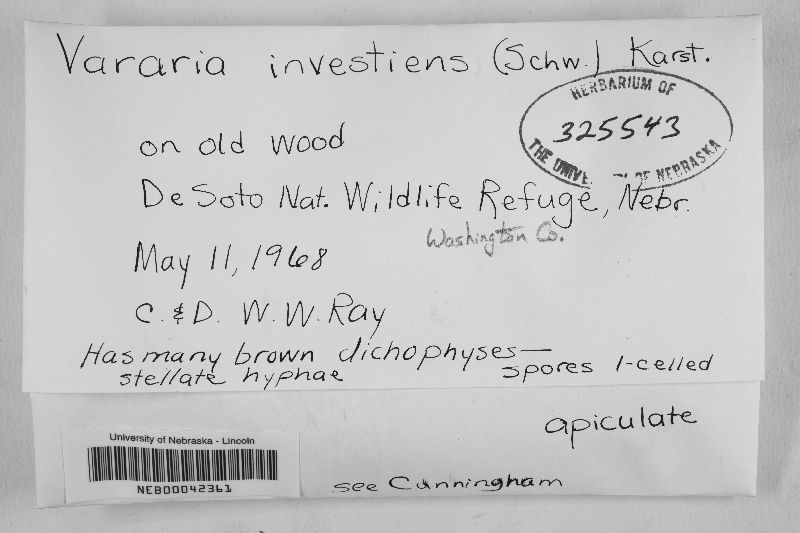 Vararia investiens (Schw.) Karst.
HERBARIUM OF
325543
THE UNIVE OF NEBRASKA
on old wood
DeSoto Nat. Wildlife Refuge, Nebr.
Washington Co.
May 11, 1968
C. & D. W. W. Ray
Has many brown dichophyses—
stellate hyphae
spores 1-celled
apiculate
University of Nebraska - Lincoln
NEB00042361
see Cunningham